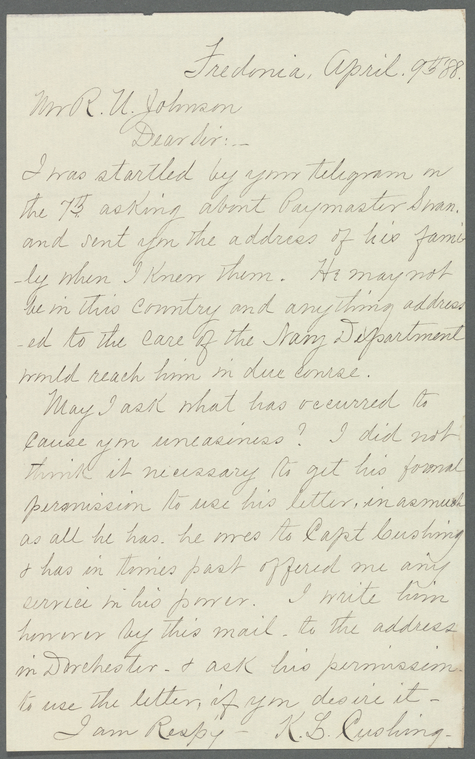 Fredonia, April. 9th '88.
Mr R. U. Johnson
Dear Sir:—
I was startled by your telegram on
the 7th asking about Paymaster Swan.
and sent you the address of his fami-
-ly when I knew them. He may not
be in this country and anything address
-ed to the care of the Navy Department
would reach him in due course.
May I ask what has occurred to
cause you uneasiness? I did not
think it necessary to get his formal
permission to use his letter, in as much
as all he has. he owes to Capt Cushing
& has in times past offered me any
service in his power. I write him
however by this mail - to the address
in Dorchester - & ask his permission
to use the letter, if you desire it -
I am Respy - K. L. Cushing.